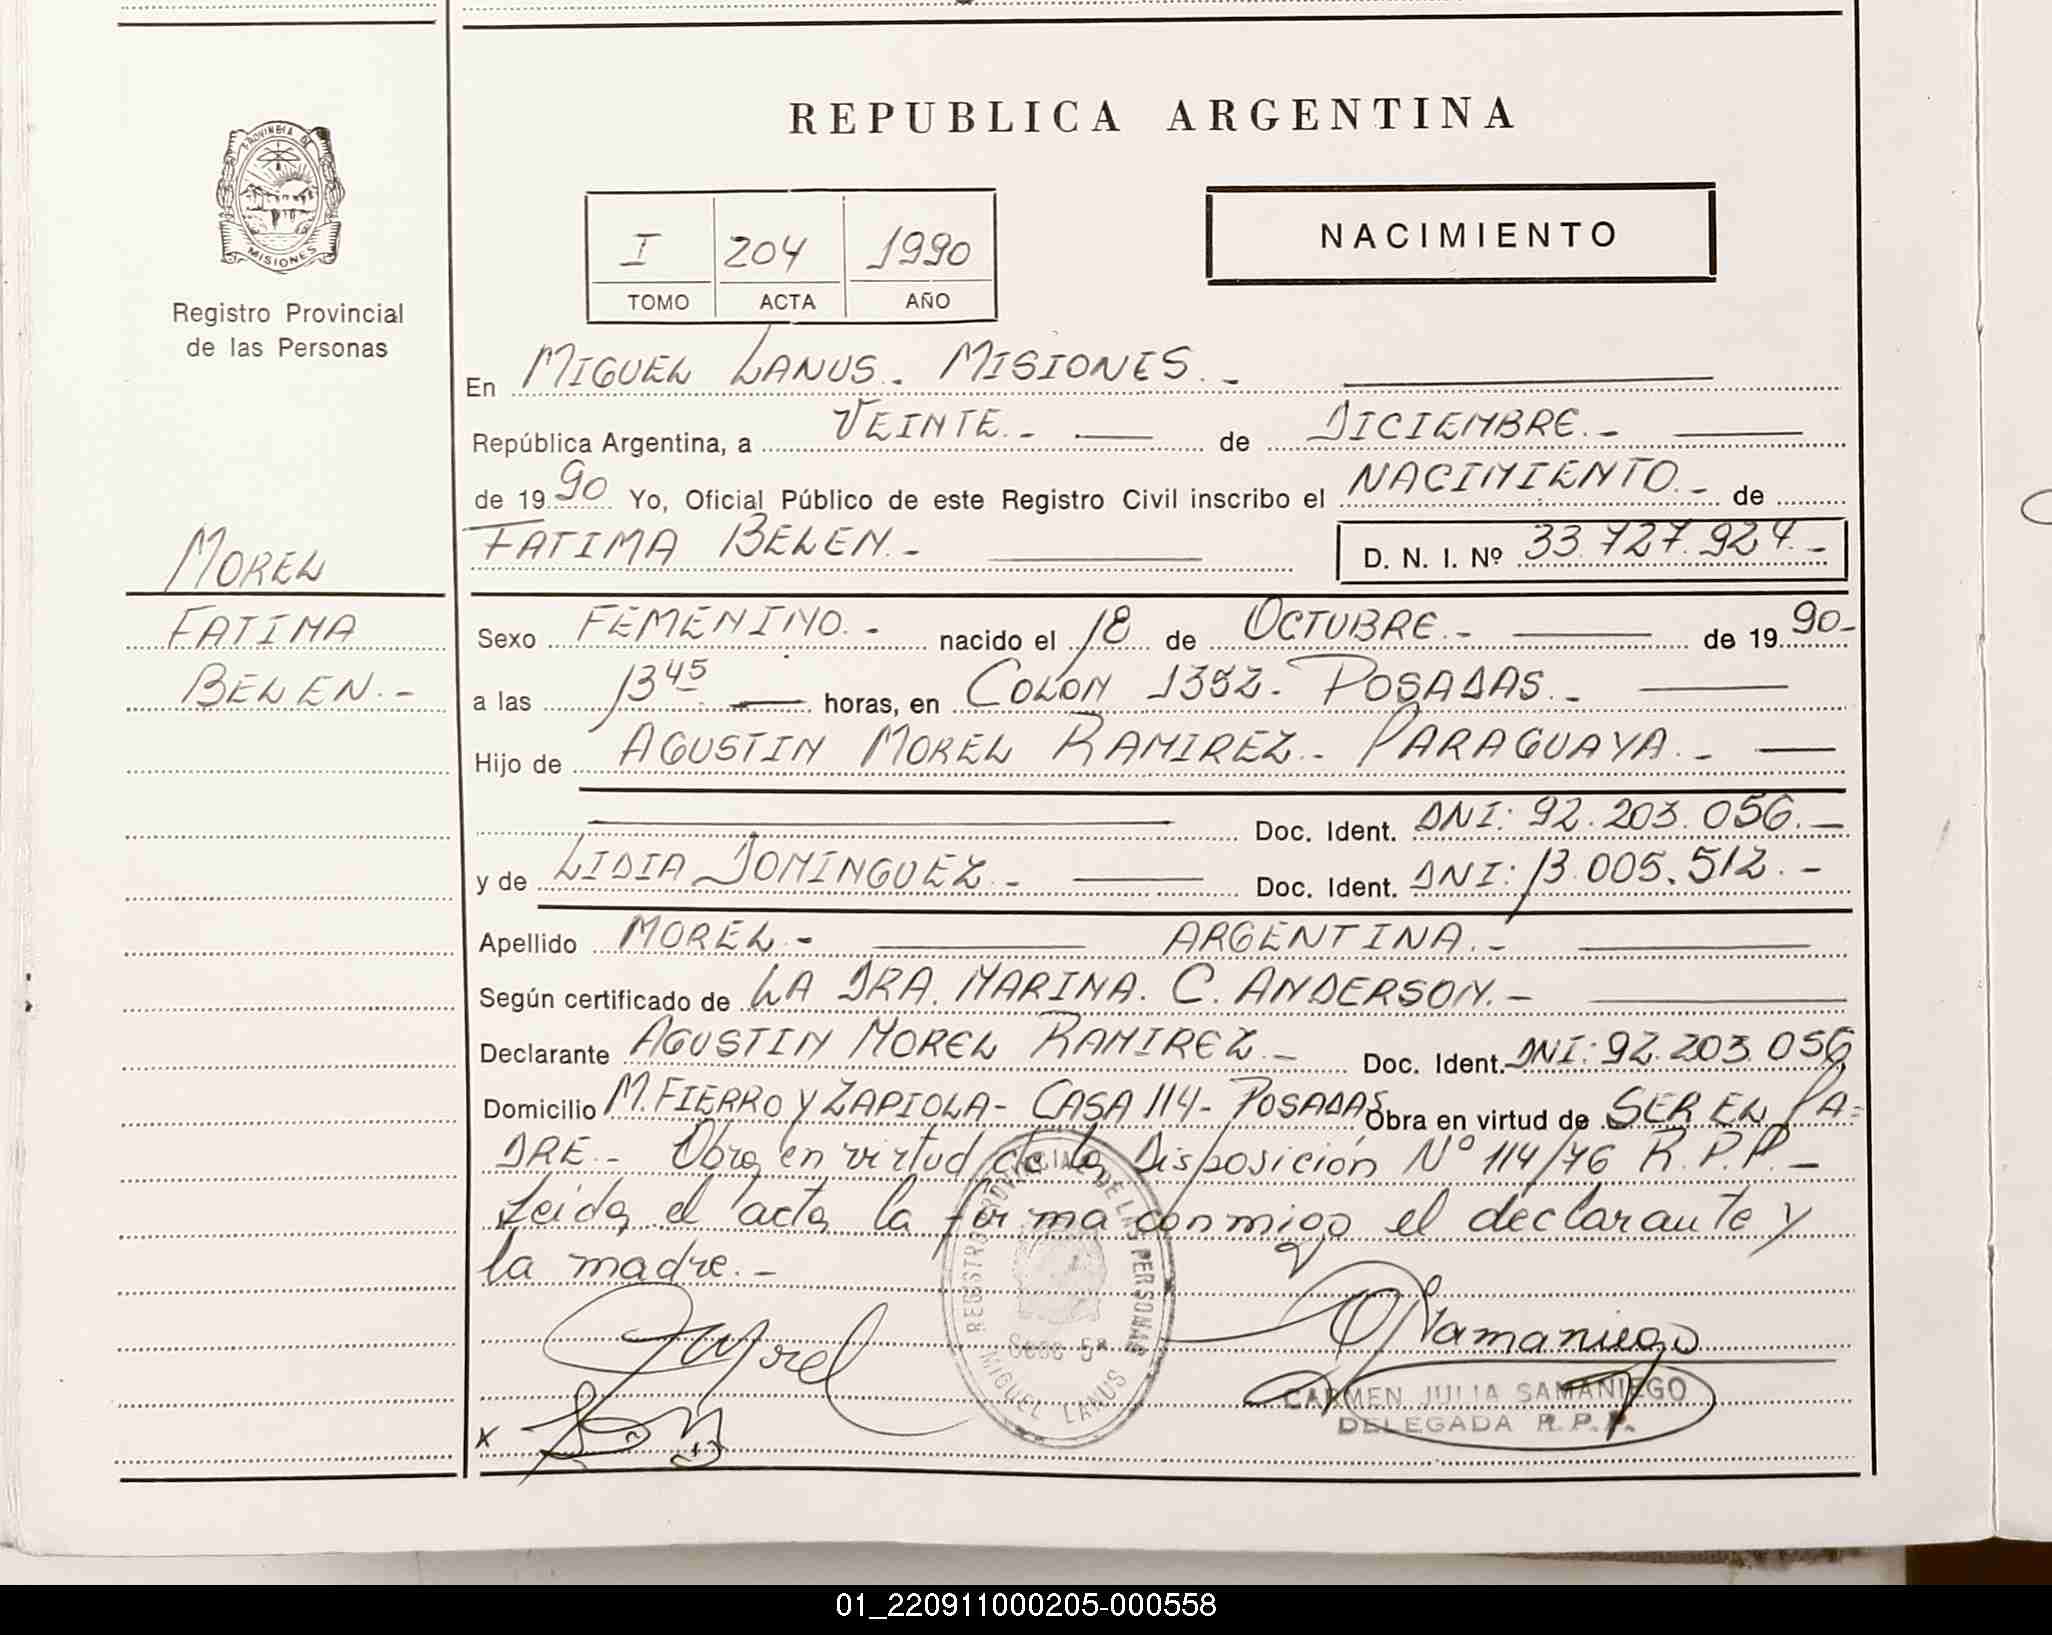 REPUBLICA ARGENTINA
PROVINCIA DE MISIONES
Registro Provincial
de las Personas
I 204 1990
TOMO ACTA AÑO
NACIMIENTO
En MIGUEL LANUS. MISIONES.-
República Argentina, a VEINTE.- de DICIEMBRE.-
de 1990 Yo, Oficial Público de este Registro Civil inscribo el NACIMIENTO.- de
FATIMA BELEN.- D. N. I. Nº 33.727.924.-
MOREL
FATIMA
BELEN.-
Sexo FEMENINO.- nacido el 18 de OCTUBRE.- de 1990-
a las 13 45 horas, en COLON 1352- POSADAS.-
Hijo de AGUSTIN MOREL RAMIREZ.- PARAGUAYA.-
Doc. Ident. DNI: 92.203.056.-
y de LIDIA DOMINGUEZ.- Doc. Ident. DNI: 13.005.512.-
Apellido MOREL.- ARGENTINA.-
Según certificado de LA DRA. MARINA. C. ANDERSON.-
Declarante AGUSTIN MOREL RAMIREZ.- Doc. Ident. DNI: 92.203.056
Domicilio M. FIERRO Y ZAPIOLA- CASA 114- POSADAS, Obra en virtud de SER EL PA=
DRE.- Obra en virtud de la Disposición Nº 114/76 R.P.P.-
Leida el acta la firma conmigo el declarante y
la madre.-
REGISTRO PROVINCIAL DE LAS PERSONAS
Secc 5ª
MIGUEL LANUS
Morel
Samaniego
CARMEN JULIA SAMANIEGO
DELEGADA R.P.P.
x
01_220911000205-000558